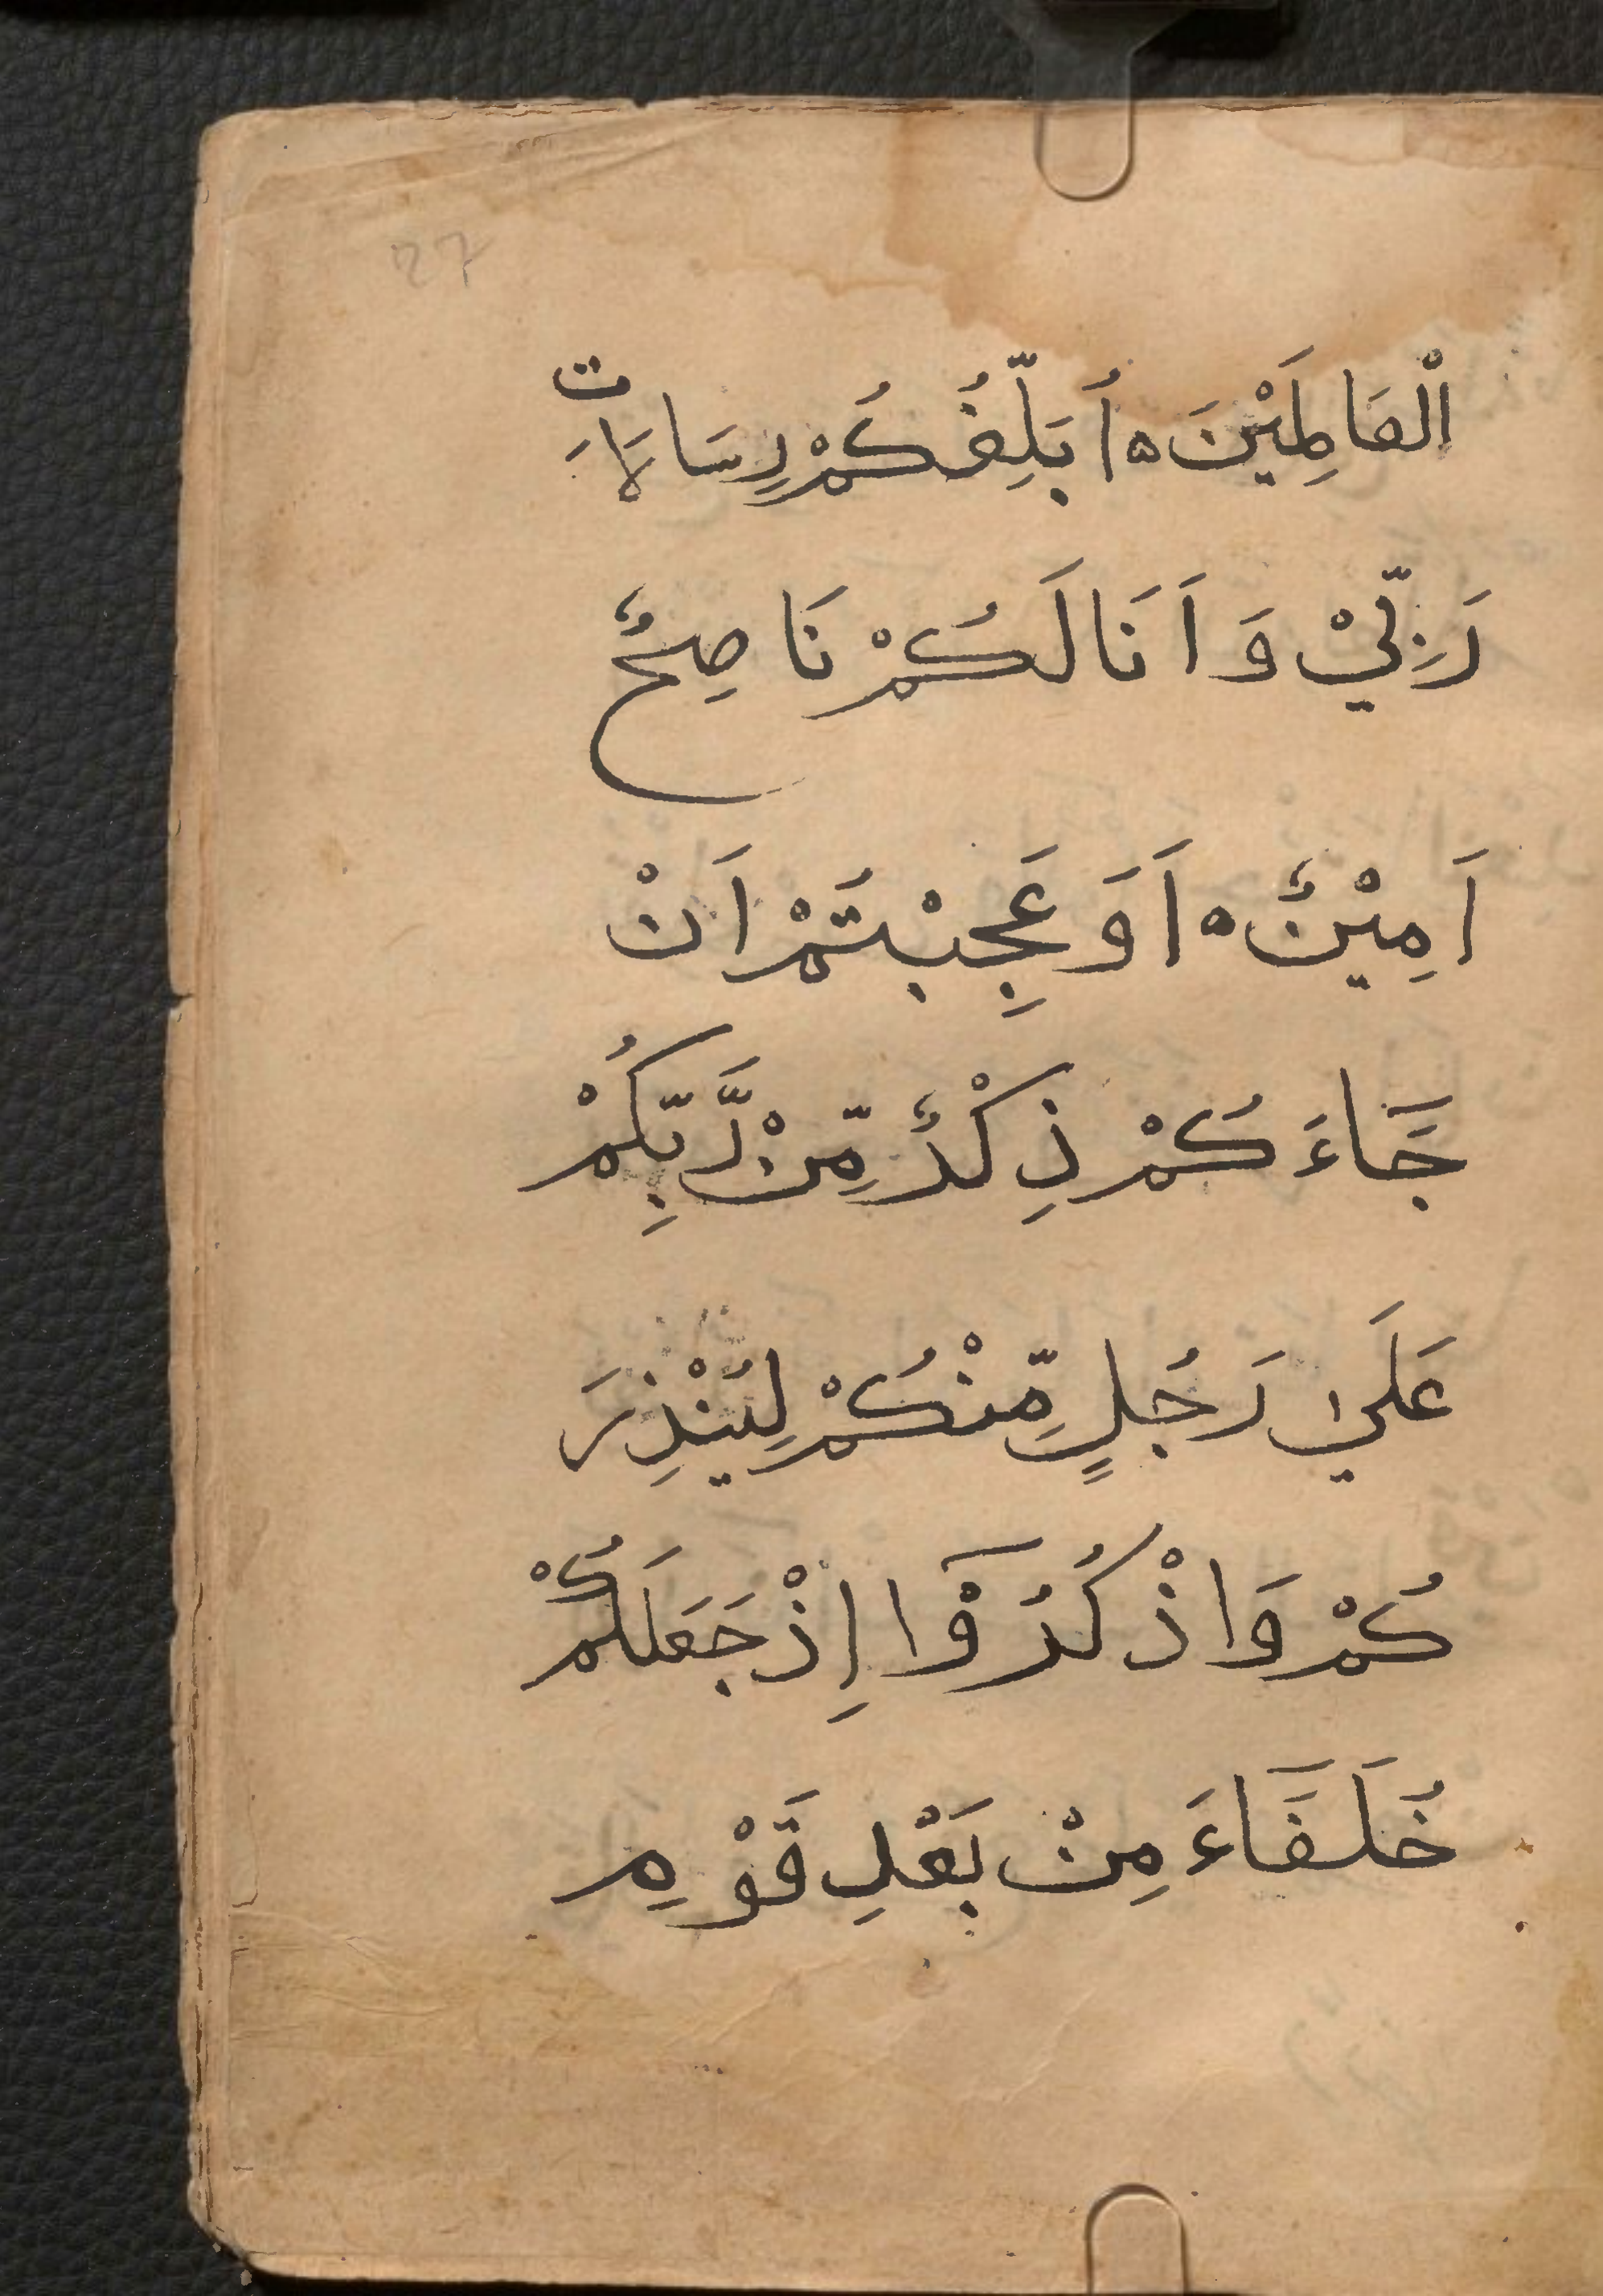 27
الْعَالَمِيْنَ ۝ اُبَلِّغُكُمْ رِسَالَاتِ
رَبِّيْ وَاَنَا لَكُمْ نَاصِحٌ
اَمِيْنٌ ۝ اَوَعَجِبْتُمْ اَنْ
جَآءَكُمْ ذِكْرٌ مِّنْ رَّبِّكُمْ
عَلَىٰ رَجُلٍ مِّنْكُمْ لِيُنْذِرَ
كُمْ وَاذْكُرُوْٓا اِذْ جَعَلَكُمْ
خُلَفَآءَ مِنْ بَعْدِ قَوْمِ